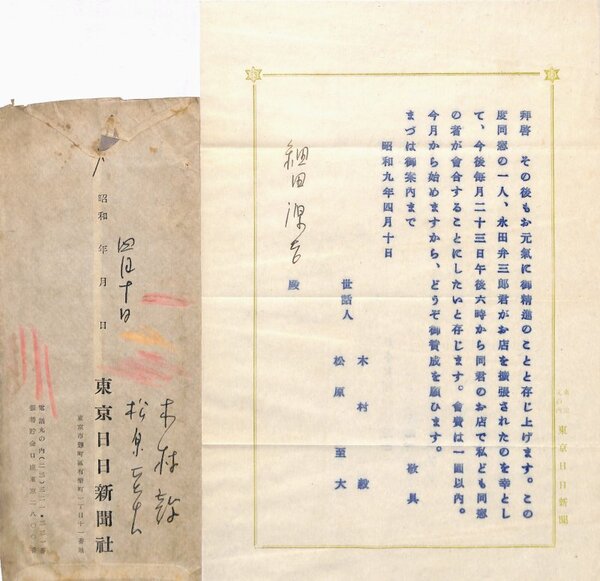 拝啓　その後もお元氣に御精進のことと存じ上げます。この
度同窓の一人、永田弁三郎君がお店を擴張されたのを幸とし
て、今後毎月二十三日午後六時から同君のお店で私ども同窓
の者が會合することにしたいと存じます。會費は一圓以內。
今月から始めますから、どうぞ御賛成を願ひます。
まづは御案內まで　敬具
昭和九年四月十日
世話人　木村　毅
松原　至大
細田源吉
殿
東京日日新聞
木村毅
松原至大
東京日日新聞社
東京市麴町區有樂町一丁目十一番地
四月十日
昭和　年　月　日